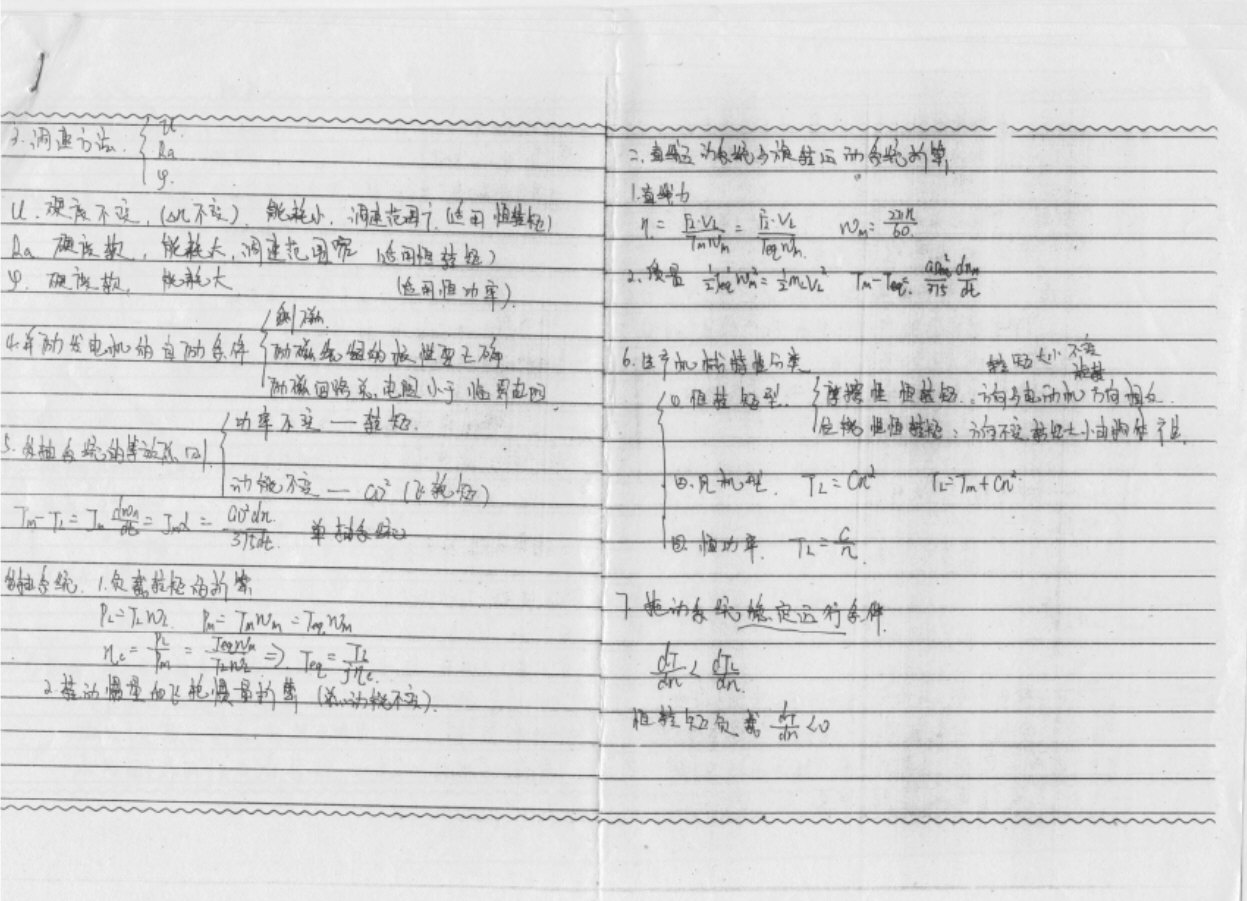 3. 调速方法 { U
Ra
φ.
U. 硬度不变, (Δn不变). 能耗小, 调速范围广 (适用恒转矩)
Ra 硬度软, 能耗大, 调速范围窄 (适用恒转矩)
φ. 硬度软, 能耗大 (适用恒功率).
4. 并励发电机的自励条件 { 剩磁.
励磁绕组的极性要正确
励磁回路总电阻小于临界电阻
5. 多轴系统的等效原则 { 功率不变 — 转矩.
动能不变 — GD² (飞轮矩)
Tm-TL = Jm dωm/dt = Jmα = GD²dn/375dt. 单轴系统
多轴系统. 1. 负载转矩的折算
PL=TLωL Pm=Tmωm=Teqωm
ηc = PL/Pm = Teqωm/TLωL ⇒ Teq = TL/jηc.
2. 转动惯量和飞轮惯量折算 (总动能不变).
二. 直线运动系统与旋转运动系统折算
1. 直线力
η = FL·VL/Tmωm = FL·VL/Teqωm. ωm = 2πn/60
2. 质量 ½Jeqωm² = ½mLVL² Tm-Teq = GDm²/375 dnm/dt
6. 生产机械特性分类 转矩大小不变
① 恒转矩型. { 摩擦性恒转矩: 方向与电动机方向相反.
位能性恒转矩: 方向不变 转矩大小由 产生.
②. 风机型. TL = Cn² TL=Tm+Cn²
③. 恒功率. TL = C/n
7. 拖动系统稳定运行条件
dT/dn < dTL/dn.
恒转矩负载 dT/dn <0